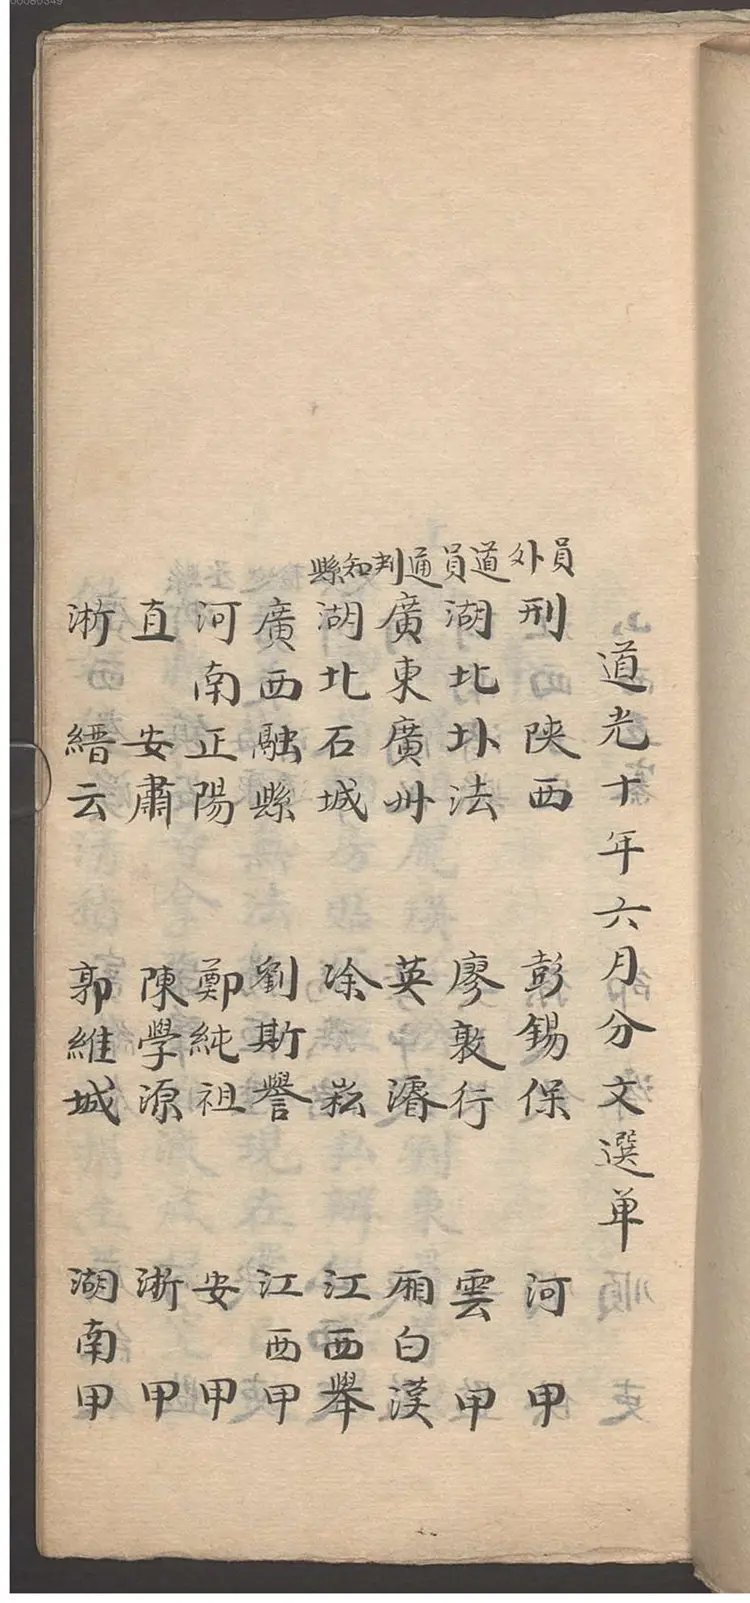 00080349
道光十年六月分文選单
員外
刑 陕西 彭錫保 河 甲
道員
湖北 圤法 廖敦行 雲 甲
通判
廣東廣州 英濬 廂白漢
知縣
湖北石城 凃崧 江西舉
廣西融縣 劉斯譽 江西甲
河南正陽 鄭純祖 安 甲
直 安肅 陳學源 淅 甲
淅 縉云 郭維城 湖南甲